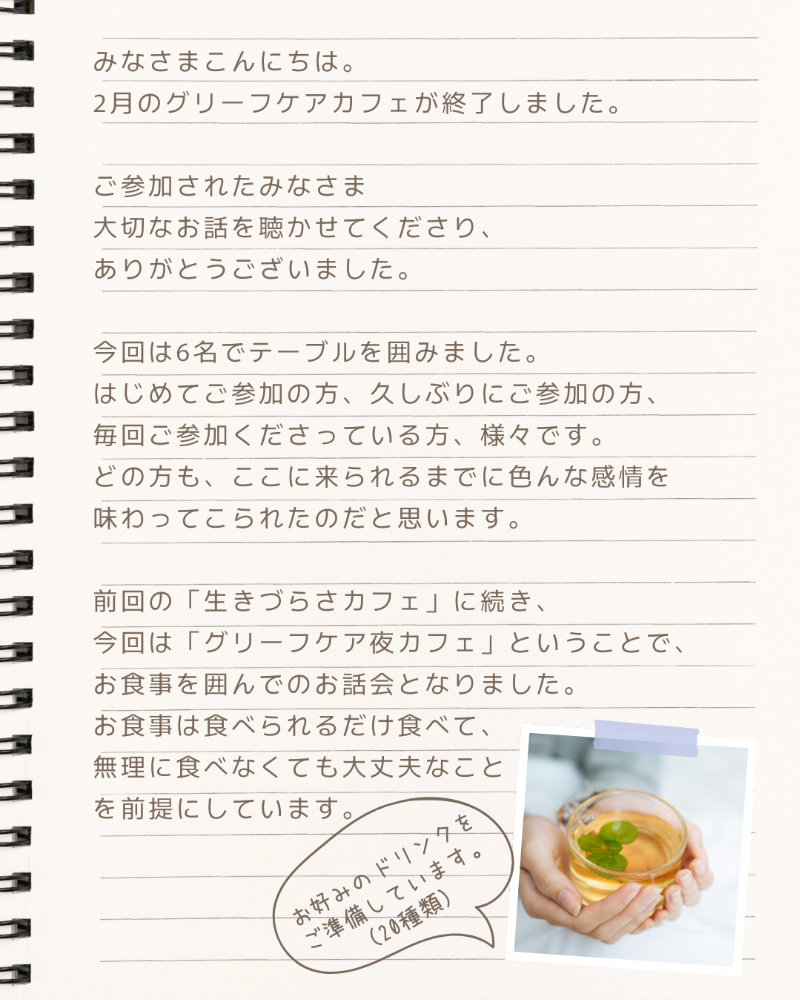 みなさまこんにちは。
2月のグリーフケアカフェが終了しました。
ご参加されたみなさま
大切なお話を聴かせてくださり、
ありがとうございました。
今回は6名でテーブルを囲みました。
はじめてご参加の方、久しぶりにご参加の方、
毎回ご参加くださっている方、様々です。
どの方も、ここに来られるまでに色んな感情を
味わってこられたのだと思います。
前回の「生きづらさカフェ」に続き、
今回は「グリーフケア夜カフェ」ということで、
お食事を囲んでのお話会となりました。
お食事は食べられるだけ食べて、
無理に食べなくても大丈夫なこと
を前提にしています。
お好みのドリンクを
ご準備しています。
(20種類)